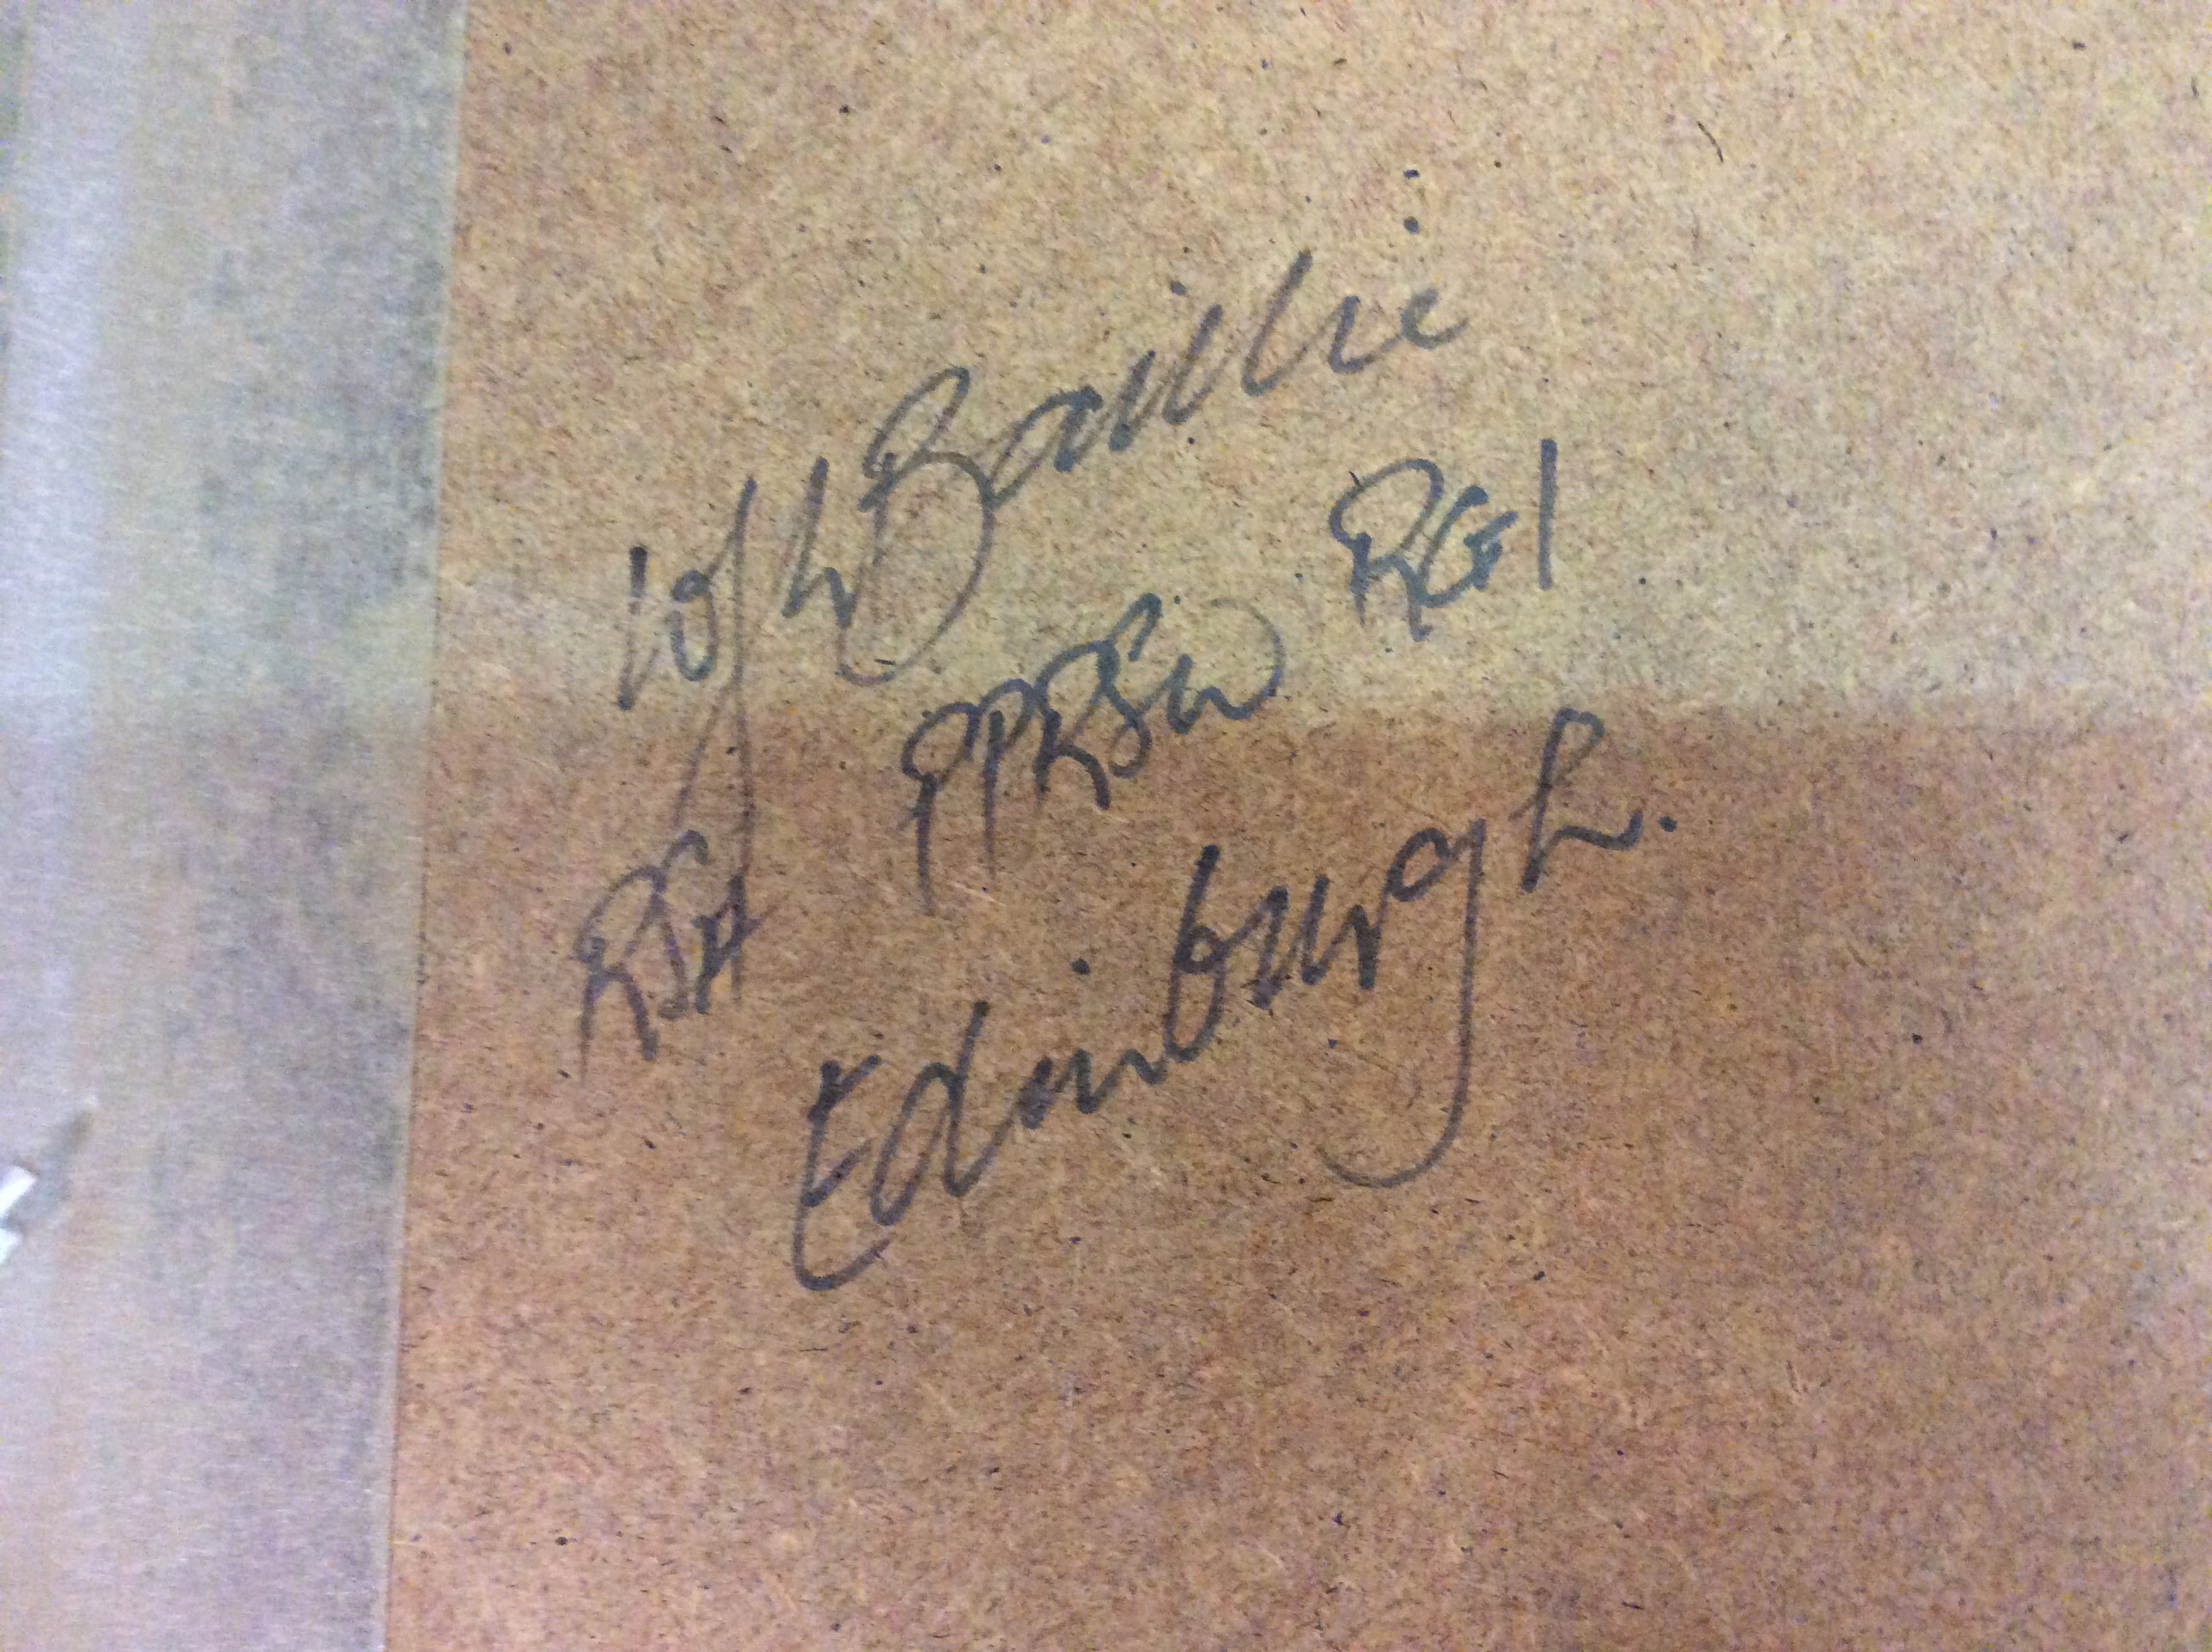 W J L Baillie
RSA PPRSW RGI
Edinburgh.